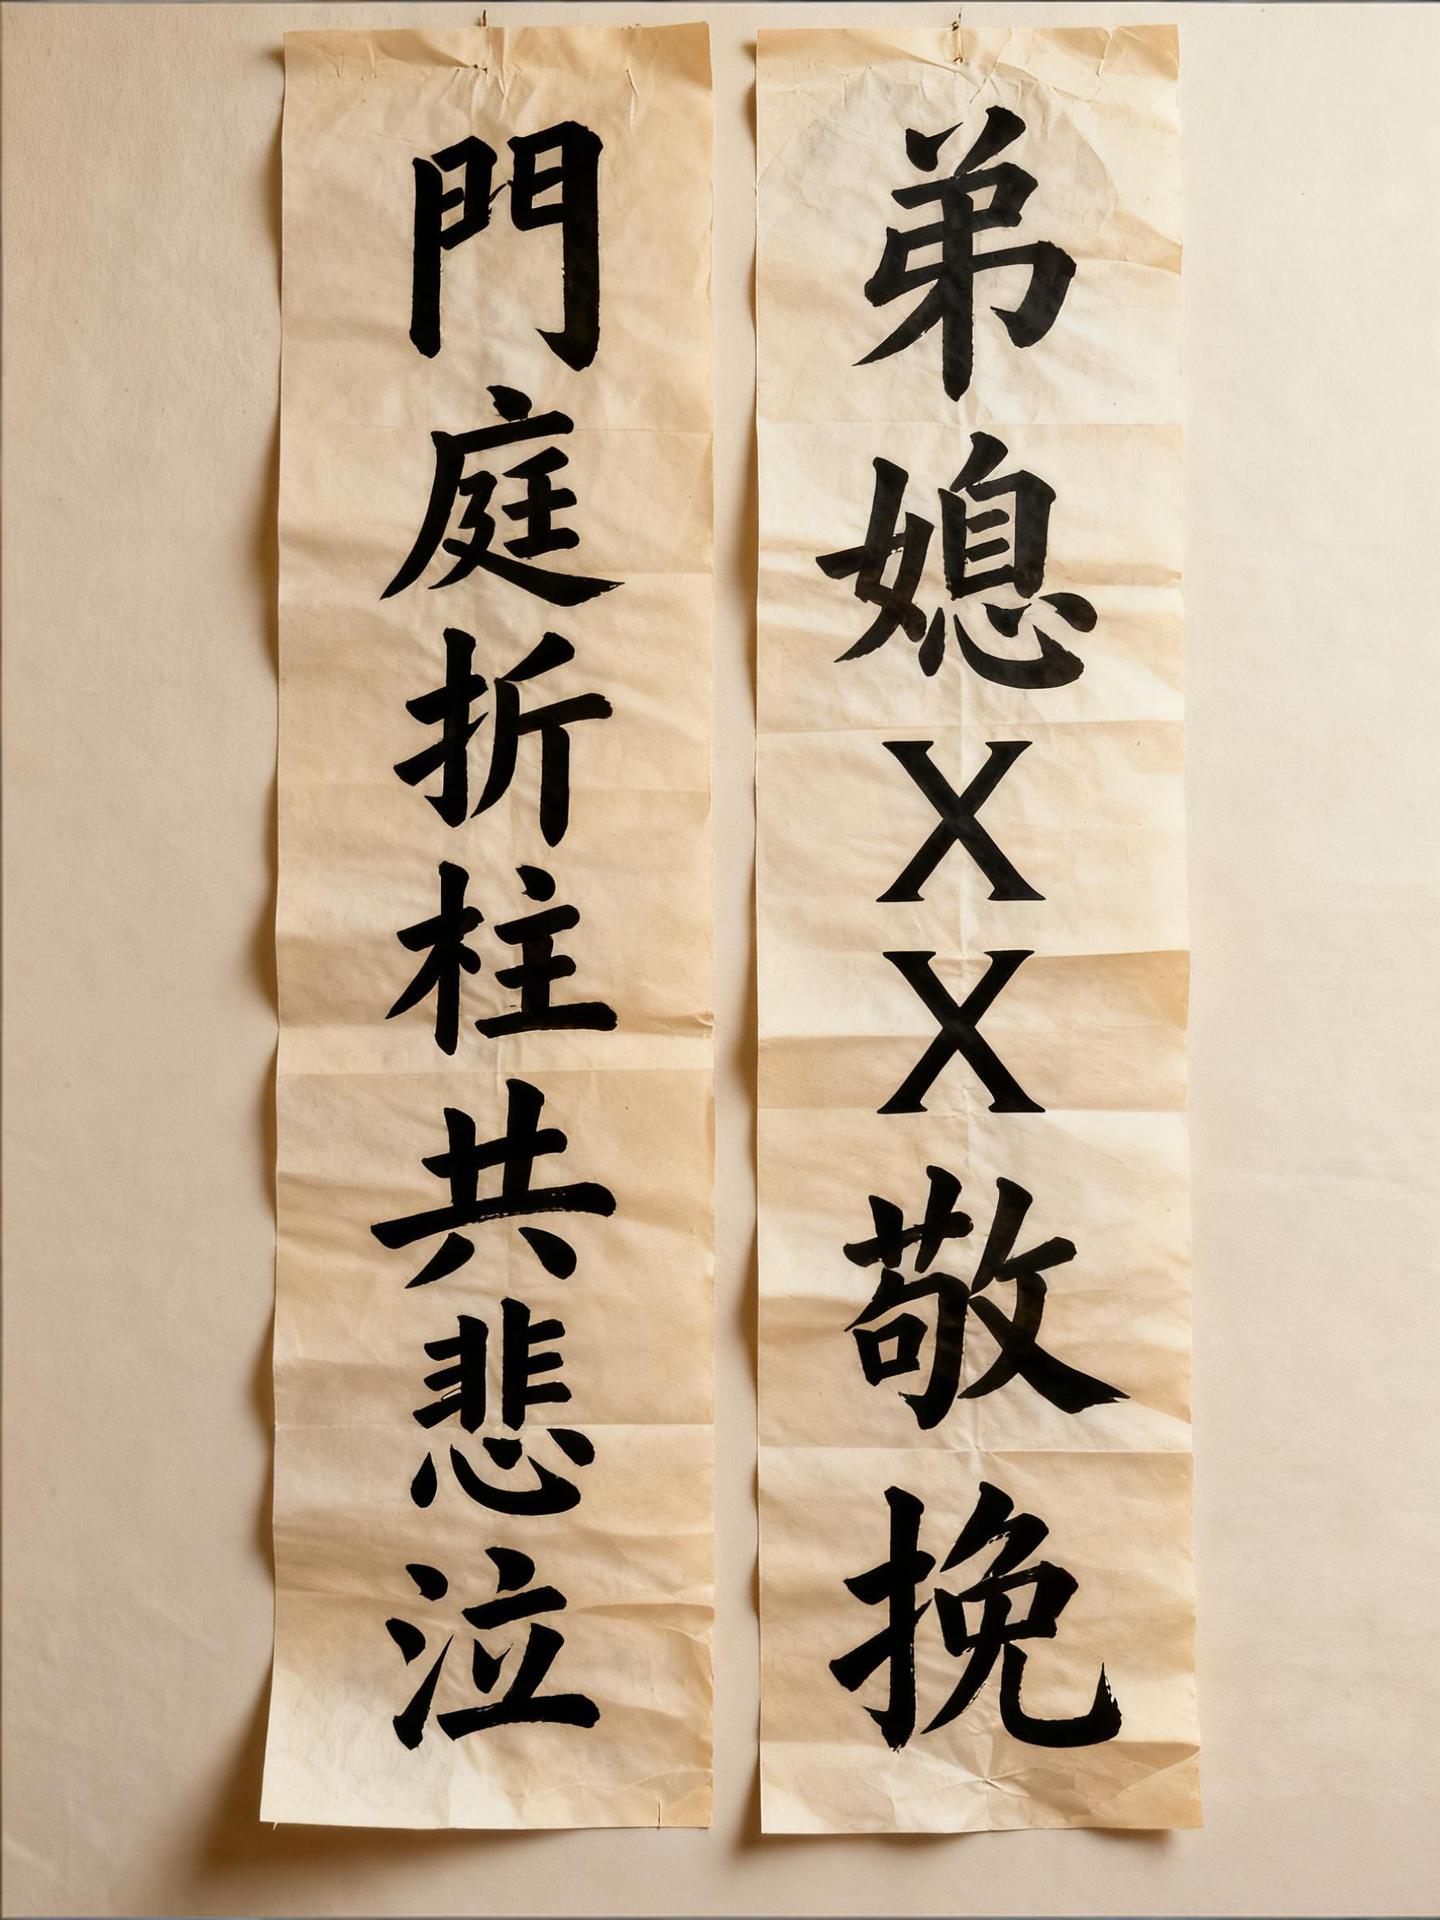 弟媳XX敬挽
門庭折柱共悲泣